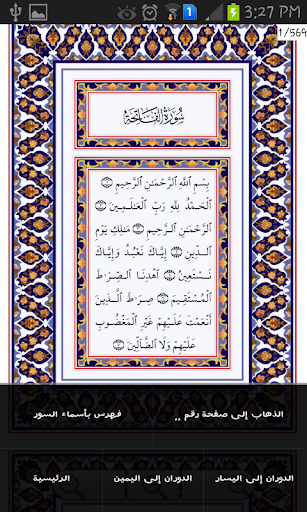 3:27 PM
1/569
سُورَةُ الْفَاتِحَةِ
بِسْمِ ٱللَّهِ ٱلرَّحْمَٰنِ ٱلرَّحِيمِ ۝
ٱلْحَمْدُ لِلَّهِ رَبِّ ٱلْعَٰلَمِينَ ۝
ٱلرَّحْمَٰنِ ٱلرَّحِيمِ ۝ مَٰلِكِ يَوْمِ
ٱلدِّينِ ۝ إِيَّاكَ نَعْبُدُ وَإِيَّاكَ
نَسْتَعِينُ ۝ ٱهْدِنَا ٱلصِّرَٰطَ
ٱلْمُسْتَقِيمَ ۝ صِرَٰطَ ٱلَّذِينَ
أَنْعَمْتَ عَلَيْهِمْ غَيْرِ ٱلْمَغْضُوبِ
عَلَيْهِمْ وَلَا ٱلضَّآلِّينَ ۝
الذهاب إلى صفحة رقم ,, فهرس بأسماء السور
الدوران إلى اليسار الدوران إلى اليمين الرئيسية